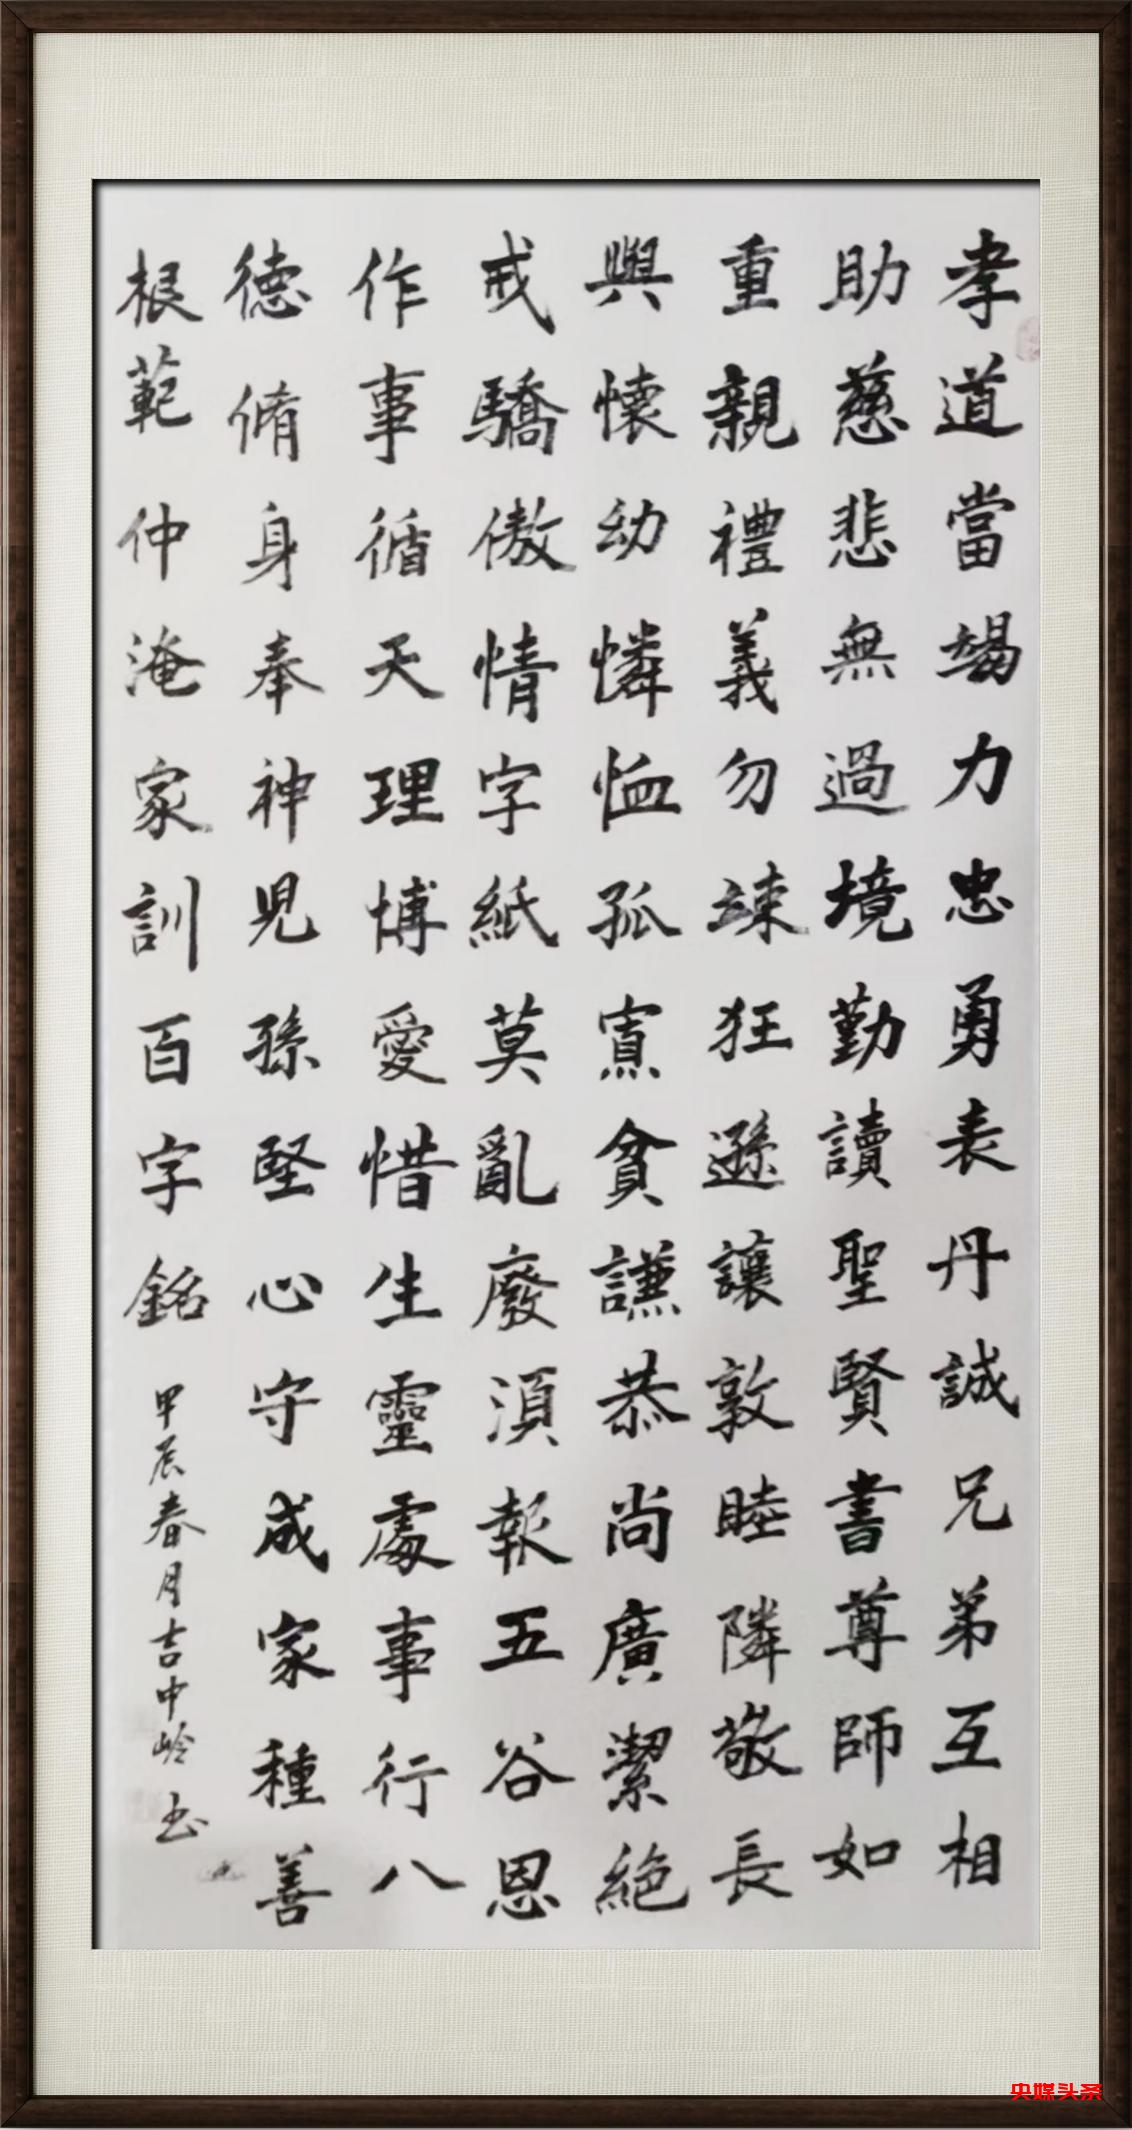 孝道當竭力忠勇表丹誠兄弟互相
助慈悲無過境勤讀聖賢書尊師如
重親禮義勿竦狂遜讓敦睦隣敬長
與懷幼憐恤孤寡貧謙恭尚廣潔絕
戒驕傲情字紙莫亂廢湏報五谷恩
作事循天理博愛惜生靈處事行八
德脩身奉神児孫堅心守成家種善
根範仲淹家訓百字銘
甲辰春月吉中岭书
央媒头条